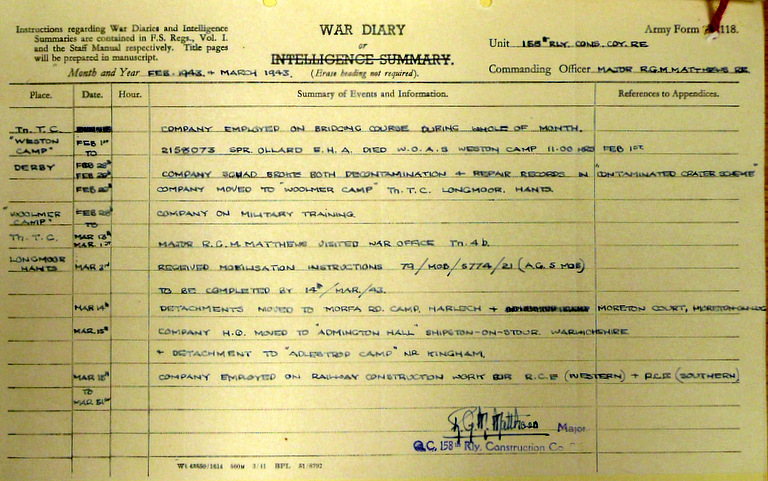 Instructions regarding War Diaries and Intelligence
Summaries are contained in F.S. Regs., Vol. I.
and the Staff Manual respectively. Title pages
will be prepared in manuscript.
Month and Year FEB. 1943. + MARCH 1943.
WAR DIARY
or
INTELLIGENCE SUMMARY.
(Erase heading not required).
Army Form 118.
Unit 158th RLY. CONS. COY. RE
Commanding Officer MAJOR R.G.M. MATTHEWS RE
Place. Date. Hour. Summary of Events and Information. References to Appendices.
Tn. T. C. COMPANY EMPLOYED ON BRIDGING COURSE DURING WHOLE OF MONTH.
"WESTON FEB 1st
CAMP" TO 2158073 SPR. OLLARD E.H.A. DIED W.O.A.S WESTON CAMP 11.00 HRS FEB 1st
DERBY FEB 28th
FEB COMPANY SQUAD BROKE BOTH DECONTAMINATION + REPAIR RECORDS IN "CONTAMINATED CRATER SCHEME"
FEB COMPANY MOVED TO "WOOLMER CAMP" Tn. T.C. LONGMOOR. HANTS
"WOOLMER FEB 28th COMPANY ON MILITARY TRAINING
CAMP" TO
Tn. T.C. MAR 13th
MAR. 1st MAJOR R.G.M. MATTHEWS VISITED WAR OFFICE Tn. 4b.
LONGMOOR MAR RECEIVED MOBILISATION INSTRUCTIONS 79/MOB/5774/21 (A.G. 5 MOB)
HANTS
TO BE COMPLETED BY 14th/MAR/43.
MAR 14th DETACHMENTS MOVED TO MORFA RD. CAMP, HARLECH + MORETON COURT,
MAR. 15th COMPANY H.Q. MOVED TO "ADMINGTON HALL" SHIPSTON-ON-STOUR. WARWICKSHIRE
+ DETACHMENT TO "ADLESTROP CAMP" NR. KINGHAM.
MAR 15th COMPANY EMPLOYED ON RAILWAY CONSTRUCTION WORK FOR R.C.E (WESTERN) + R.C.E (SOUTHERN)
TO
MAR 31st
R.G.M. Matthews Major
O.C. 158th Rly. Construction Co
Wt 43550/1614 560M 3/41 BPL 51/8792